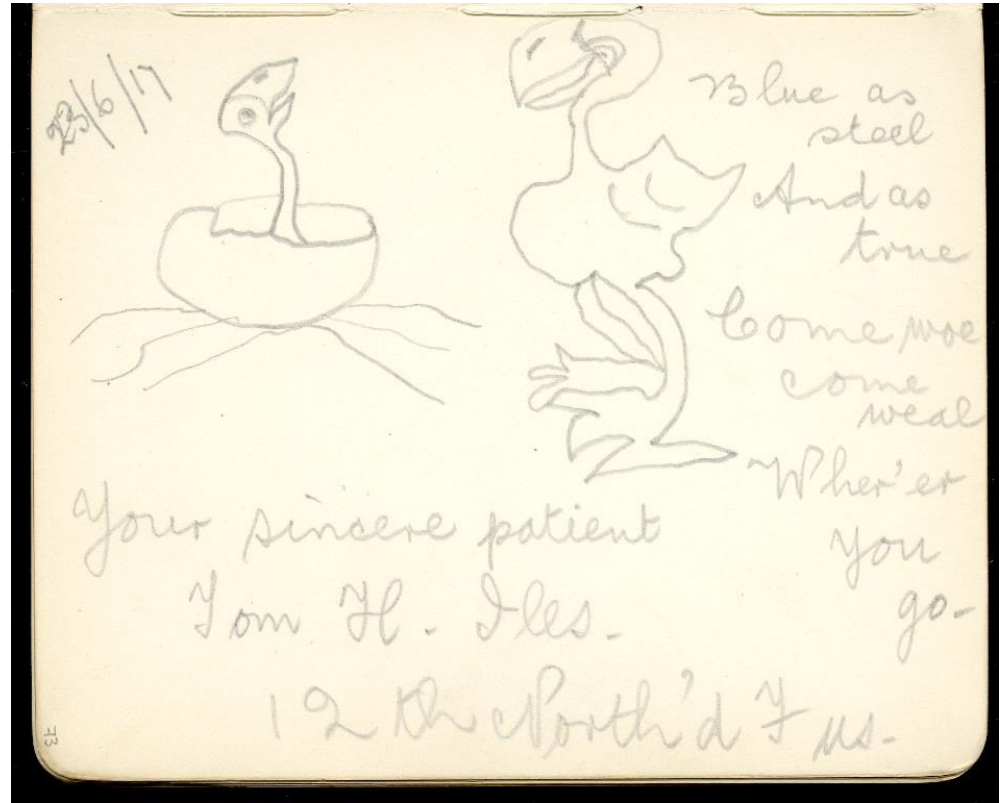 23/6/17
Blue as
steel
And as
true
Come woe
come
weal
Wher'er
you
go-
Your sincere patient
Tom H. Iles.
12th North'd Fus.
73